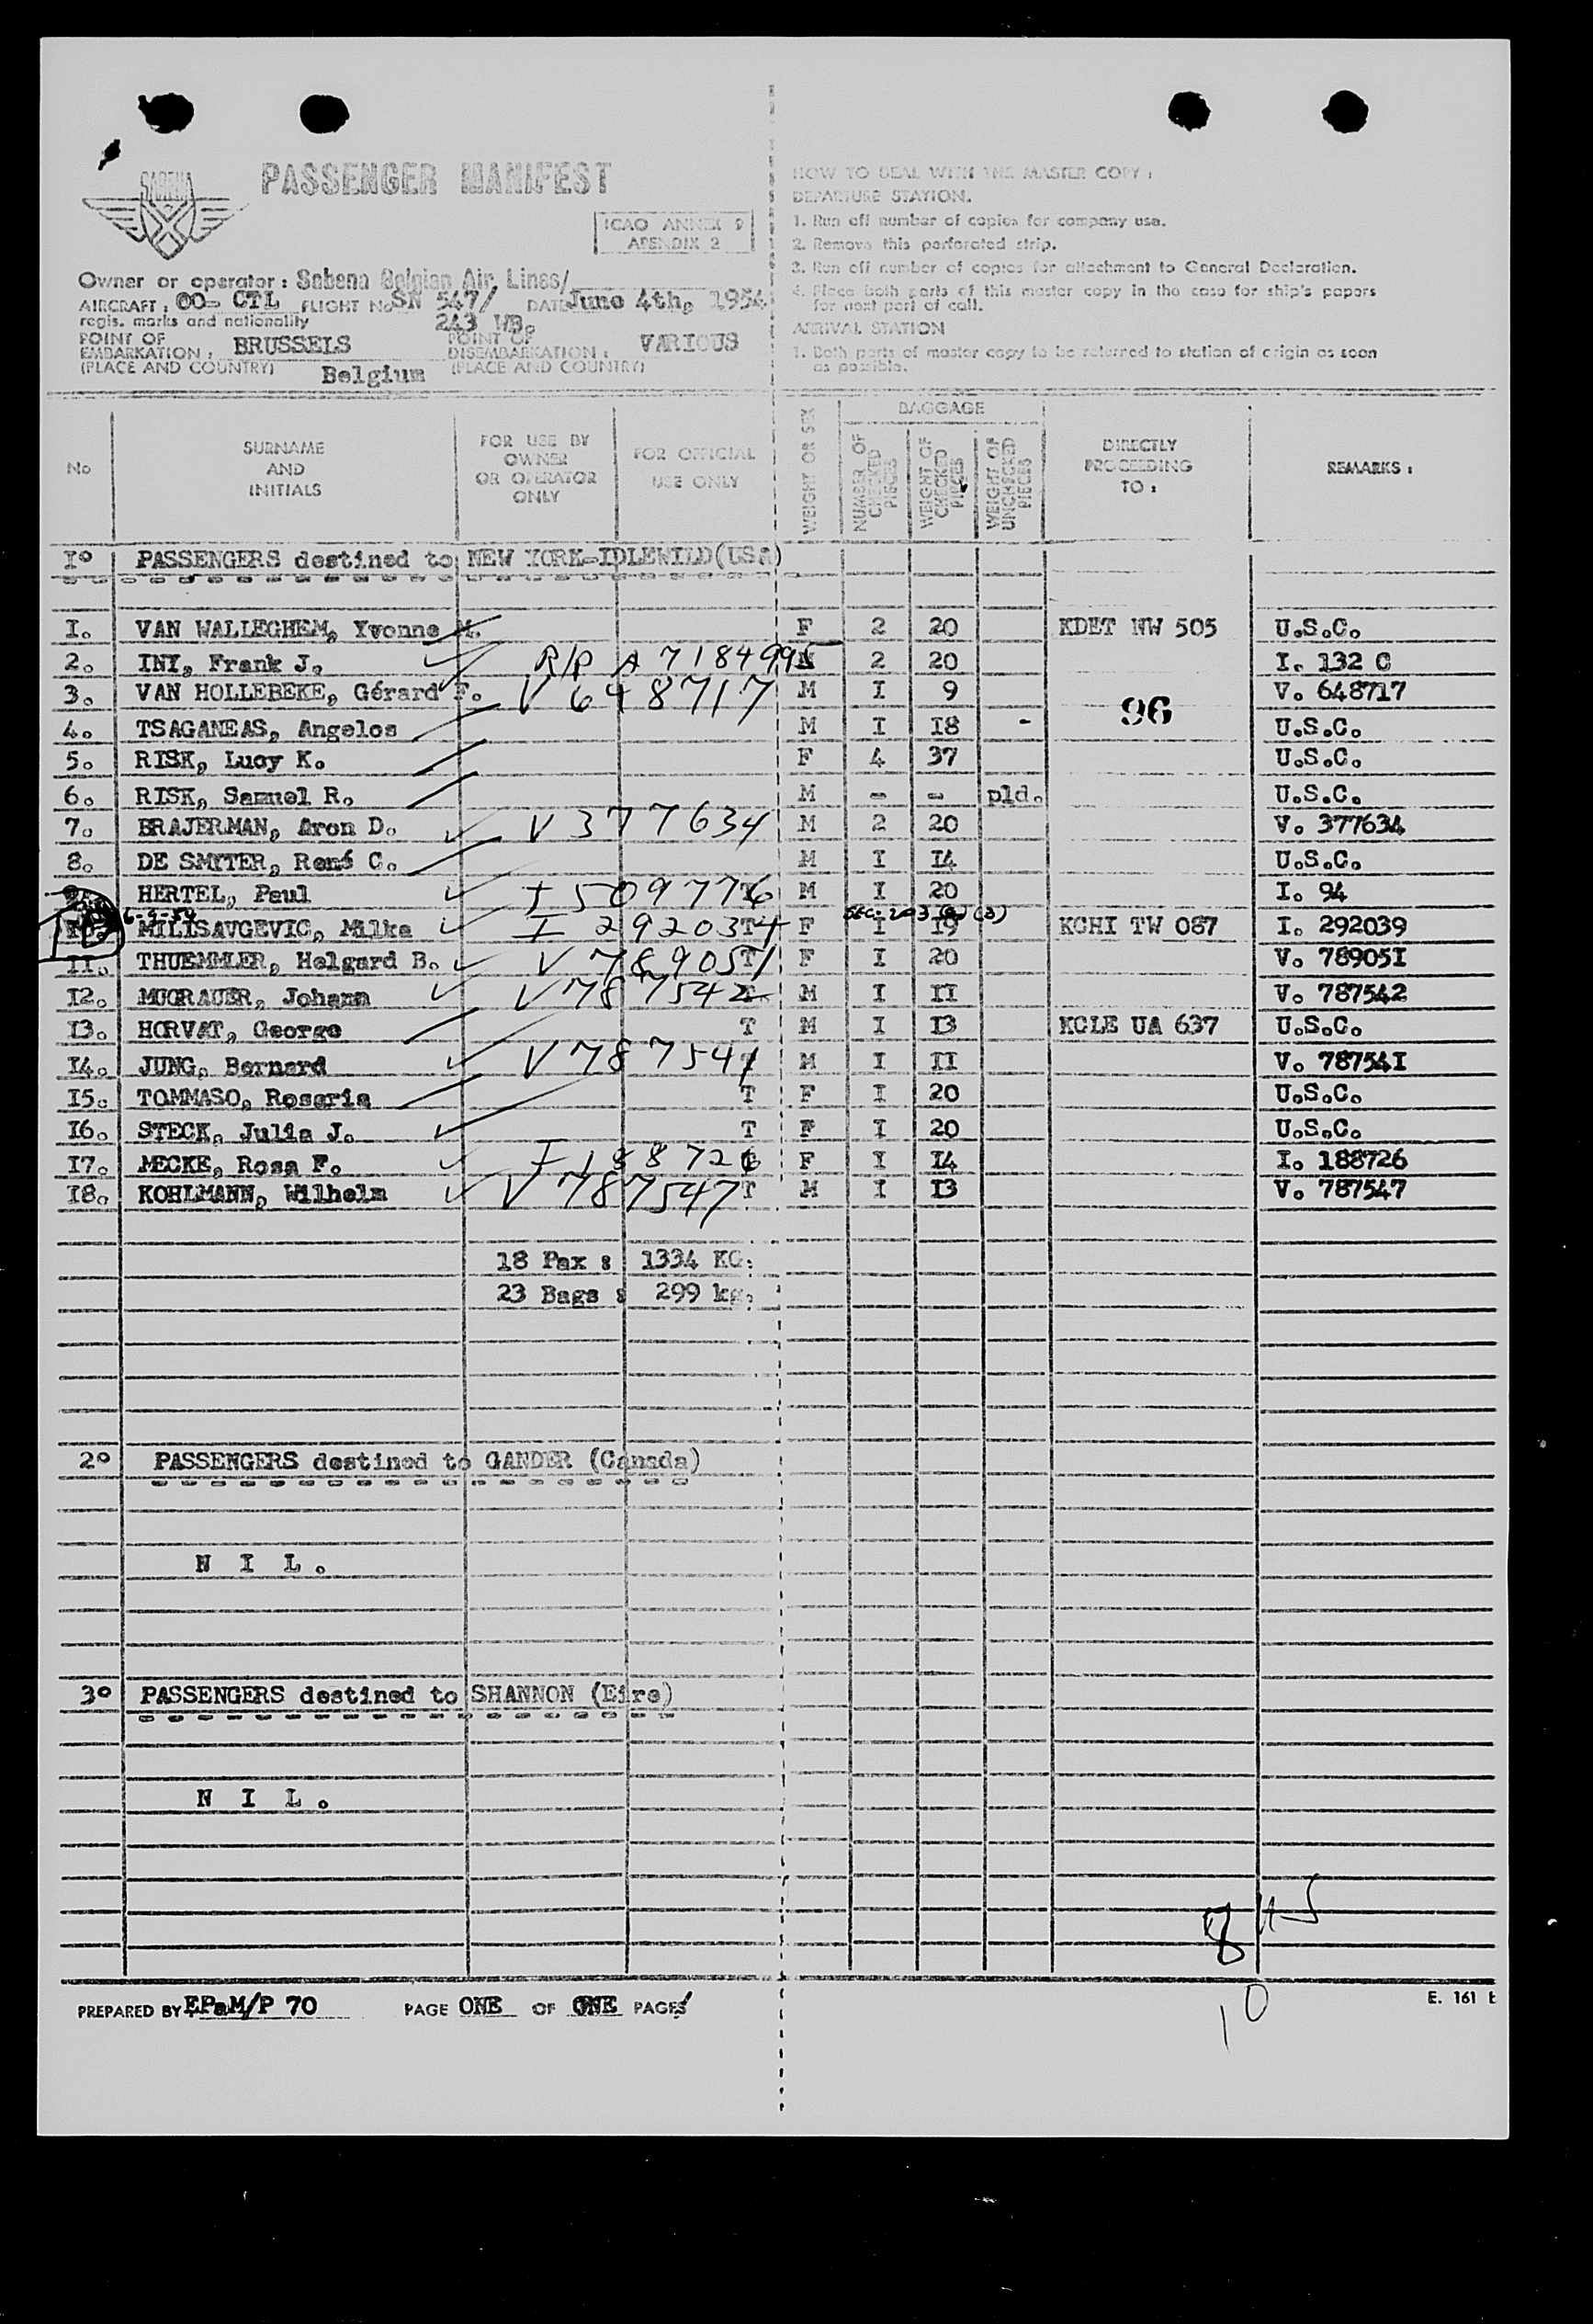 SABENA
PASSENGER MANIFEST
ICAO ANNEX 9
APENDIX 2
Owner or operator : Sabena Belgian Air Lines/
AIRCRAFT : OO- CTL FLIGHT No SN 547/ DATE June 4th, 1954
regis. marks and nationality 243 WB.
POINT OF EMBARKATION : BRUSSELS POINT OF DISEMBARKATION : VARIOUS
(PLACE AND COUNTRY) Belgium (PLACE AND COUNTRY)
HOW TO DEAL WITH THE MASTER COPY :
DEPARTURE STATION.
1. Run off number of copies for company use.
2. Remove this perforated strip.
3. Run off number of copies for attachment to General Declaration.
4. Place both parts of this master copy in the case for ship's papers
for next port of call.
ARRIVAL STATION
1. Both parts of master copy to be returned to station of origin as soon
as possible.
No
SURNAME
AND
INITIALS
FOR USE BY
OWNER
OR OPERATOR
ONLY
FOR OFFICIAL
USE ONLY
WEIGHT OR SEX
BAGGAGE
NUMBER OF CHECKED PIECES
WEIGHT OF CHECKED PIECES
WEIGHT OF UNCHECKED PIECES
DIRECTLY
PROCEEDING
TO :
REMARKS :
I° PASSENGERS destined to NEW YORK-IDLEWILD(USA)
I. VAN WALLEGHEM, Yvonne M. F 2 20 KDET NW 505 U.S.C.
2. INY, Frank J. R/P A 7184995 M 2 20 I. 132 C
3. VAN HOLLEBEKE, Gérard F. V 648717 M I 9 V. 648717
96
4. TSAGANEAS, Angelos M I I8 - U.S.C.
5. RISK, Lucy K. F 4 37 U.S.C.
6. RISK, Samuel R. M - - pld. U.S.C.
7. BRAJERMAN, Aron D. V 377634 M 2 20 V. 377634
8. DE SMYTER, René C. M I I4 U.S.C.
9. HERTEL, Paul I 509776 T M I 20 I. 94
6-5-54 SEC. 203 (a) (3)
10. MILISAVGEVIC, Milka I 292034 T F I I9 KCHI TW 087 I. 292039
II. THUEMMLER, Helgard B. V 789051 T F I 20 V. 78905I
I2. MUGRAUER, Johann V 787542 T M I II V. 787542
I3. HORVAT, George T M I I3 KCLE UA 637 U.S.C.
I4. JUNG, Bernard V 787541 T M I II V. 78754I
I5. TOMMASO, Rosaria T F I 20 U.S.C.
I6. STECK, Julia J. T F I 20 U.S.C.
I7. MECKE, Rosa F. I 188726 T F I I4 I. 188726
I8. KOHLMANN, Wilhelm V 787547 T M I I3 V. 787547
18 Pax : 1334 KG.
23 Bags : 299 kg.
2° PASSENGERS destined to GANDER (Canada)
N I L.
3° PASSENGERS destined to SHANNON (Eire)
N I L.
8
10
PREPARED BY EPaM/P 70 PAGE ONE OF ONE PAGES
E. 161 t